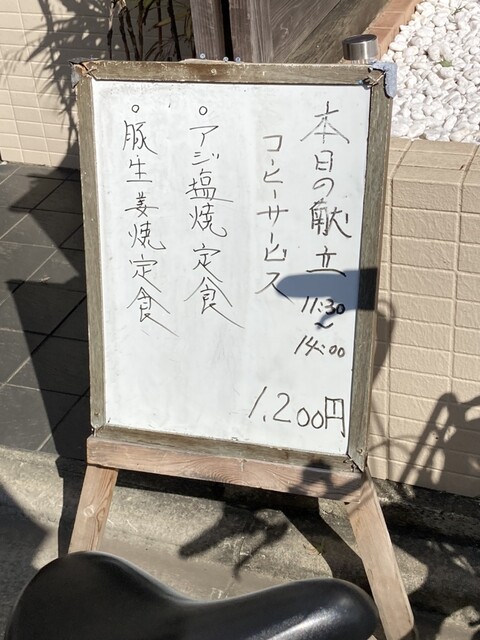 本日の献立
11:30
~
14:00
コーヒーサービス
1,200円
。アジ塩焼定食
。豚生姜焼定食